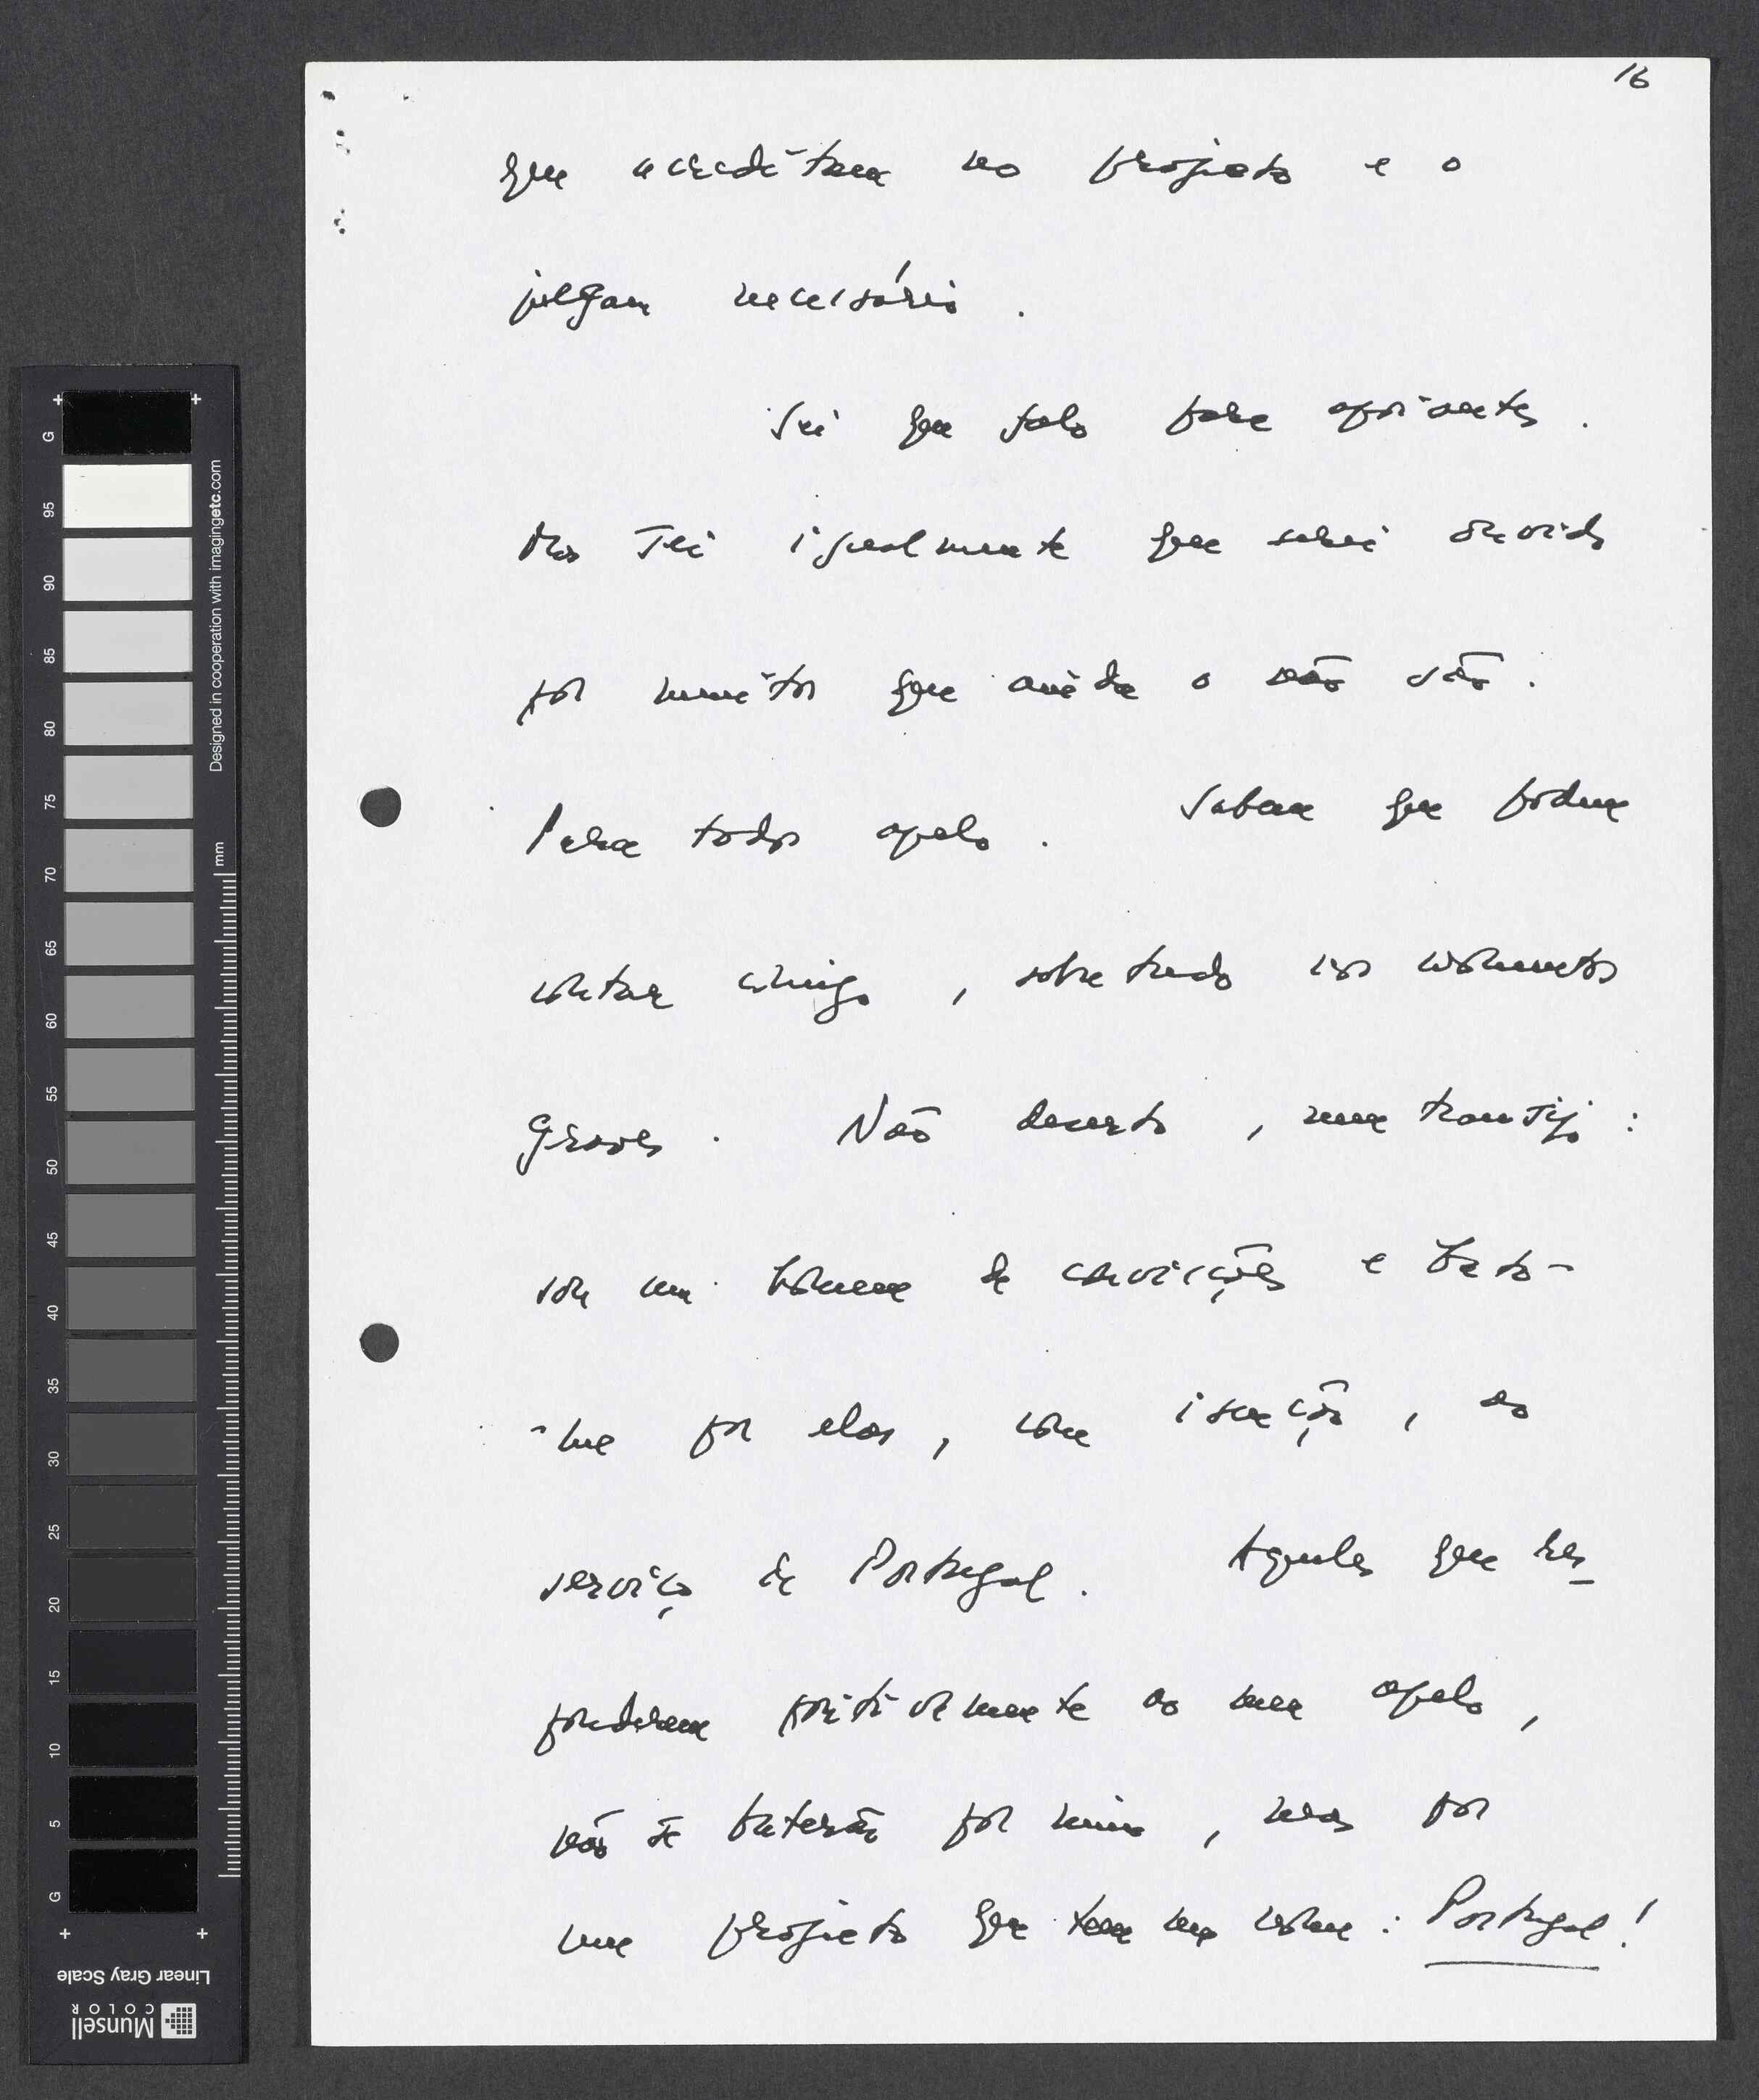 16
que acreditam no projecto e o
julgam necessário.
Sei que falo para apoiantes.
Mas sei igualmente que serei ouvido
por muitos que ainda o não são.
Para todos apelo. Sabem que podem
contar comigo, sobretudo nos momentos
graves. Não deserto, nem transijo:
sou um homem de convicções e bato-
-me por elas, com isenção, ao
serviço de Portugal. Aqueles que res_
ponderem positivamente ao meu apelo,
não se baterão por mim, mas por
um projecto que tem um nome: Portugal!
G
95
90
85
80
75
70
65
60
55
50
45
40
35
30
25
20
15
10
5
G
Designed in cooperation with imagingetc.com
mm
Linear Gray Scale
Munsell
COLOR